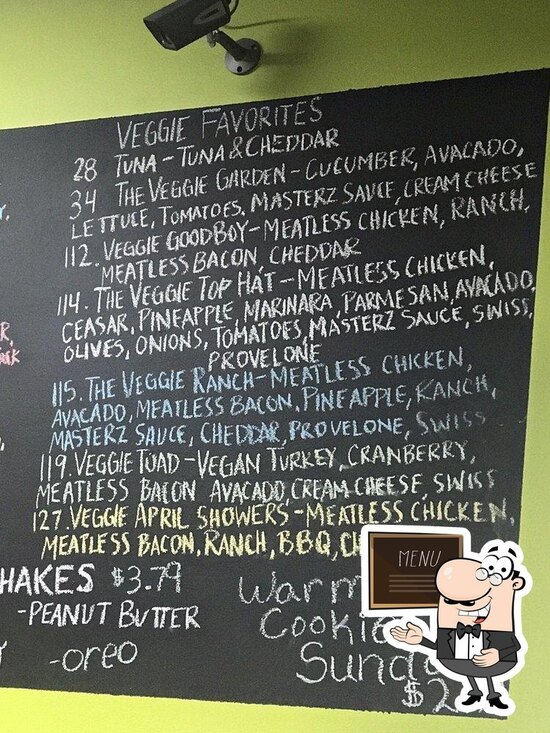 VEGGIE FAVORITES
28 TUNA - TUNA & CHEDDAR
34 THE VEGGIE GARDEN - CUCUMBER, AVACADO,
LETTUCE, TOMATOES, MASTERZ SAUCE, CREAM CHEESE
112. VEGGIE GOODBOY - MEATLESS CHICKEN, RANCH,
MEATLESS BACON CHEDDAR
114. THE VEGGIE TOP HAT - MEATLESS CHICKEN,
CEASAR, PINEAPPLE, MARINARA, PARMESAN, AVACADO,
OLIVES, ONIONS, TOMATOES, MASTERZ SAUCE, SWISS,
PROVELONE
115. THE VEGGIE RANCH - MEATLESS CHICKEN,
AVACADO, MEATLESS BACON, PINEAPPLE, RANCH,
MASTERZ SAUCE, CHEDDAR, PROVELONE, SWISS
119. VEGGIE TOAD - VEGAN TURKEY, CRANBERRY,
MEATLESS BACON AVACADO, CREAM CHEESE, SWISS
127 VEGGIE APRIL SHOWERS - MEATLESS CHICKEN,
MEATLESS BACON, RANCH, BBQ,
HAKES $3.79
- PEANUT BUTTER
- oreo
Warm
Cookie
Sunda
$2
MENU